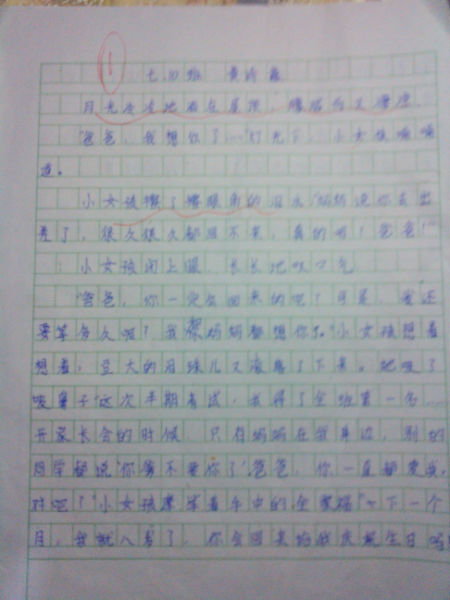 七四班 黄诗嘉
月光冷冷地洒在屋顶，朦胧而又
"爸爸，我想你了……"灯光下，小女孩喃喃
道。
小女孩擦了擦眼角的泪水，"妈妈说你去出
差了，很久很久都回不来，真的吗！爸爸！"
小女孩闭上眼，长长地叹口气
"爸爸，你一定会回来的吧？可是，我还
要等多久呢？我和妈妈都想你了。"小女孩想着
想着，豆大的泪珠儿又滚落了下来。她吸了
吸鼻子"这次半期考试，我得了全班第一名……
开家长会的时候，只有妈妈在我身边，别的
同学都说'你爹不要你了'爸爸，你一直都爱我，
对吧？"小女孩摩挲着手中的全家福"下一个
月，我就八岁了，你会回来给我庆祝生日吗